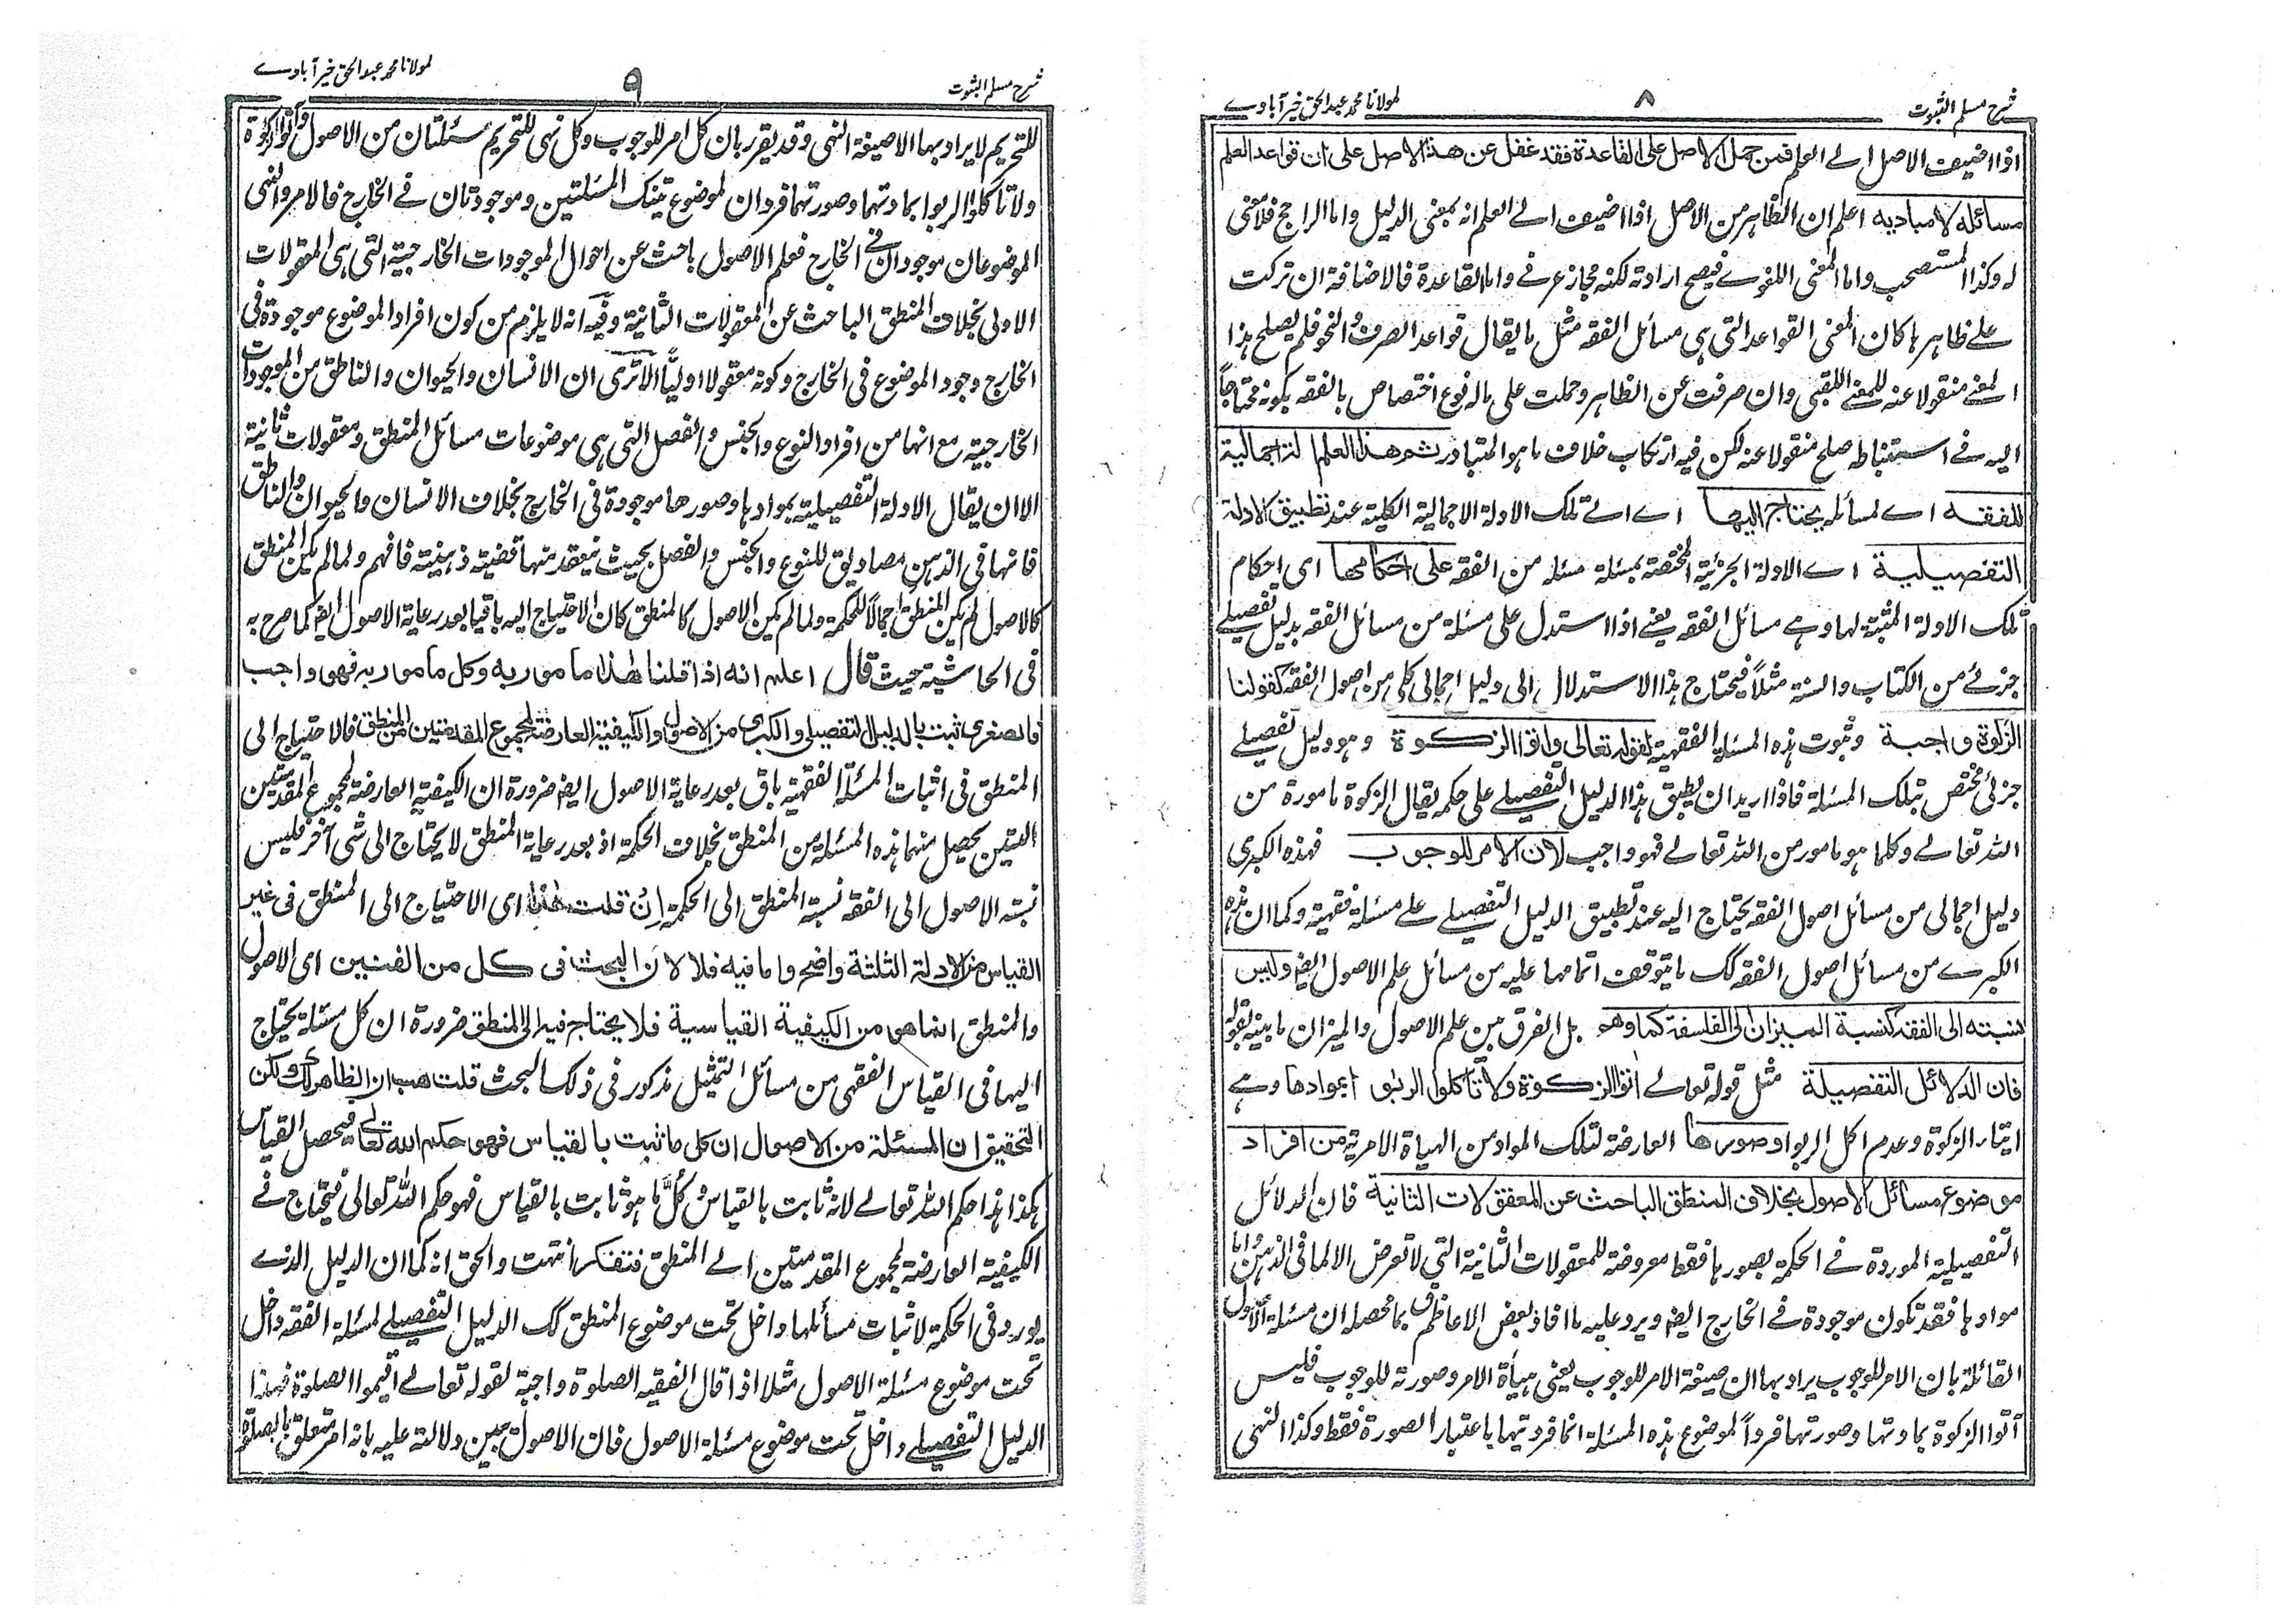 شرح مسلم الثبوت
٨
لمولانا محمد عبدالحق خيرآبادے
اذا اضيف الاصل الے العلم فمن حمل الاصل على القاعدة فقد غفل عن هذا الاصل على ان قواعد العلم
مسائله لا مباديه اعلم ان الظاهر من الاصل اذا اضيف الے العلم انه بمعنى الدليل واما الراجح فلا معنى
له وكذا المستصحب واما المعنى اللغوے فيصح ارادته لكنه مجاز عرفے واما القاعدة فالاضافة ان تركت
علے ظاهرها كان المعنى القواعد التى هى مسائل الفقه مثل ما يقال قواعد الصرف والنحو فلم يصلح هذا
المعنے منقولا عنه للمعنے اللقبى وان صرفت عن الظاهر وحملت على ماله نوع اختصاص بالفقه بكونه محتاجاً
اليه فے استنباطه صلح منقولا عنه لكن فيه ارتكاب خلاف ما هو المتبادر ثم هذا العلم ادلة اجمالية
للفقه اے لمسائله يحتاج اليها اے الے تلك الادلة الاجمالية الكلية عند تطبيق الادلة
التفصيلية اے الادلة الجزئية المختصة بمسئلة مسئلة من الفقه على احكامها اى احكام
تلك الادلة المثبتة لها وهے مسائل الفقه يعنے اذا استدل على مسئلة من مسائل الفقه بدليل تفصيلے
جزئے من الكتاب والسنة مثلاً فيحتاج هذا الاستدلال الى دليل اجمالى كلى من اصول الفقه كقولنا
الزكوة واجبة وثبوت هذه المسئلة الفقهية لقوله تعالى واتوا الزكوة وهو دليل تفصيلے
جزئى مختص بتلك المسئلة فاذا اريد ان يطبق هذا الدليل التفصيلے على حكمه يقال الزكوة مامورة من
الله تعالے وكلما هو مامور من الله تعالے فهو واجب لان الامر للوجوب فهذه الكبرى
دليل اجمالى من مسائل اصول الفقه يحتاج اليه عند تطبيق الدليل التفصيلے علے مسئلة فقهية وكما ان هذه
الكبرے من مسائل اصول الفقه كك ما يتوقف اتمامها عليه من مسائل علم الاصول ايضا وليس
نسبته الى الفقه كنسبة الميزان الى الفلسفة كما وهو بل الفرق بين علم الاصول والميزان ما بينه بقوله
فان الدلائل التفصيلة مثل قوله تعالے اتوا الزكوة ولا تاكلوا الربو بموادها وهے
ايتاء الزكوة وعدم اكل الربوا وصورها العارضة لتلك المواد من الهيأة الامرية من افراد
موضوع مسائل الاصول بخلاف المنطق الباحث عن المعقولات الثانية فان الدلائل
التفصيلية الموردة فے الحكمة بصورها فقط معروضة للمعقولات الثانية التي لا تعرض الا لما فى الذهن واما
موادها فقد تكون موجودة فے الخارج ايضا ويرد عليه ما افاد بعض الاعاظم بما محصله ان مسئلة الاصول
القائلة بان الامر للوجوب يراد بها ان صيغة الامر للوجوب يعنى هيأة الامر وصورته للوجوب فليس
آتوا الزكوة بمادتها وصورتها فرداً لموضوع هذه المسئلة انما فرديتها باعتبار الصورة فقط وكذا النهى
شرح مسلم الثبوت
٩
لمولانا محمد عبدالحق خيرآبادے
للتحريم لا يراد بها الا صيغة النهى وقد يقرر بان كل امر للوجوب وكل نهى للتحريم مسئلتان من الاصول وآتوا الزكوة
ولا تاكلوا الربوا بمادتهما وصورتهما فردان لموضوع تينك المسئلتين وموجودتان فے الخارج فالامر والنهى
الموضوعان موجودان فى الخارج فعلم الاصول باحث عن احوال الموجودات الخارجية التى هى المعقولات
الاولى بخلاف المنطق الباحث عن المعقولات الثانية وفيه انه لا يلزم من كون افراد الموضوع موجودة فى
الخارج وجود الموضوع فى الخارج وكونه معقولا اولياً الا ترى ان الانسان والحيوان والناطق من الموجودات
الخارجية مع انها من افراد النوع والجنس والفصل التى هى موضوعات مسائل المنطق ومعقولات ثانية
الا ان يقال الادلة التفصيلية بموادها وصورها موجودة فى الخارج بخلاف الانسان والحيوان والناطق
فانها فى الذهن مصاديق للنوع والجنس والفصل بحيث ينعقد منها قضية ذهنية فافهم ولما لم يكن المنطق
كالاصول لم يكن المنطق اجمالاً للحكمة ولما لم يكن الاصول كالمنطق كان الاحتياج اليه باقيا بعد رعاية الاصول ايضا كما صرح به
فى الحاشية حيث قال اعلم انه اذا قلنا هذا مامور به وكل مامور به فهو واجب
فالصغرى ثبت بالدليل التفصيلى والكبرى من الاصول والكيفية العارضة لمجموع المقدمتين من المنطق فالاحتياج الى
المنطق فى اثبات المسئلة الفقهية باق بعد رعاية الاصول ايضا ضرورة ان الكيفية العارضة لمجموع المقدمتين
اللتين يحصل منهما هذه المسئلة من المنطق بخلاف الحكمة اذ بعد رعاية المنطق لا يحتاج الى شى آخر فليس
نسبة الاصول الى الفقه نسبة المنطق الى الحكمة ان قلت هذا اى الاحتياج الى المنطق فى غير
القياس من الادلة الثلثة واضح واما فيه فلا لان البحث فى كل من الفنين اى الاصول
والمنطق انما هو من الكيفية القياسية فلا يحتاج فيه الى المنطق ضرورة ان كل مسئلة يحتاج
اليها فى القياس الفقهى من مسائل التمثيل مذكور فى ذلك البحث قلت هب ان الظاهر ذلك ولكن
التحقيق ان المسئلة من الاصول ان كل ما ثبت بالقياس فهو حكم الله تعالے فيحصل القياس
هكذا هذا حكم الله تعالے لانه ثابت بالقياس وكل ما هو ثابت بالقياس فهو حكم الله تعالى فيحتاج فے
الكيفية العارضة لمجموع المقدمتين الے المنطق فتفكر انتهت والحق انه كما ان الدليل الذے
يورد فى الحكمة لاثبات مسائلها داخل تحت موضوع المنطق كك الدليل التفصيلے لمسئلة الفقه داخل
تحت موضوع مسئلة الاصول مثلا اذا قال الفقيه الصلوة واجبة لقوله تعالے اقيموا الصلوة فهذا
الدليل التفصيلے داخل تحت موضوع مسئلة الاصول فان الاصول يبين دلالته عليه بانه امر متعلق بالصلوة